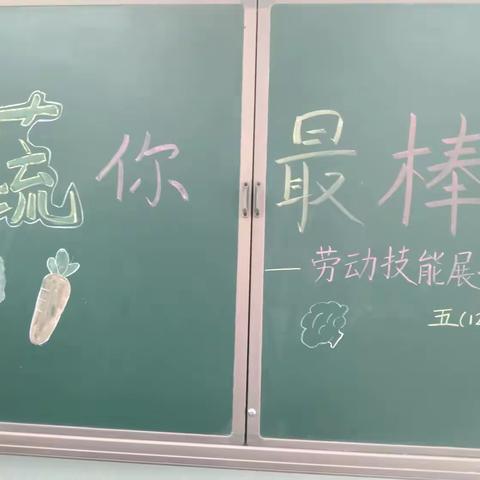 蔬你最棒
—劳动技能展
五(12